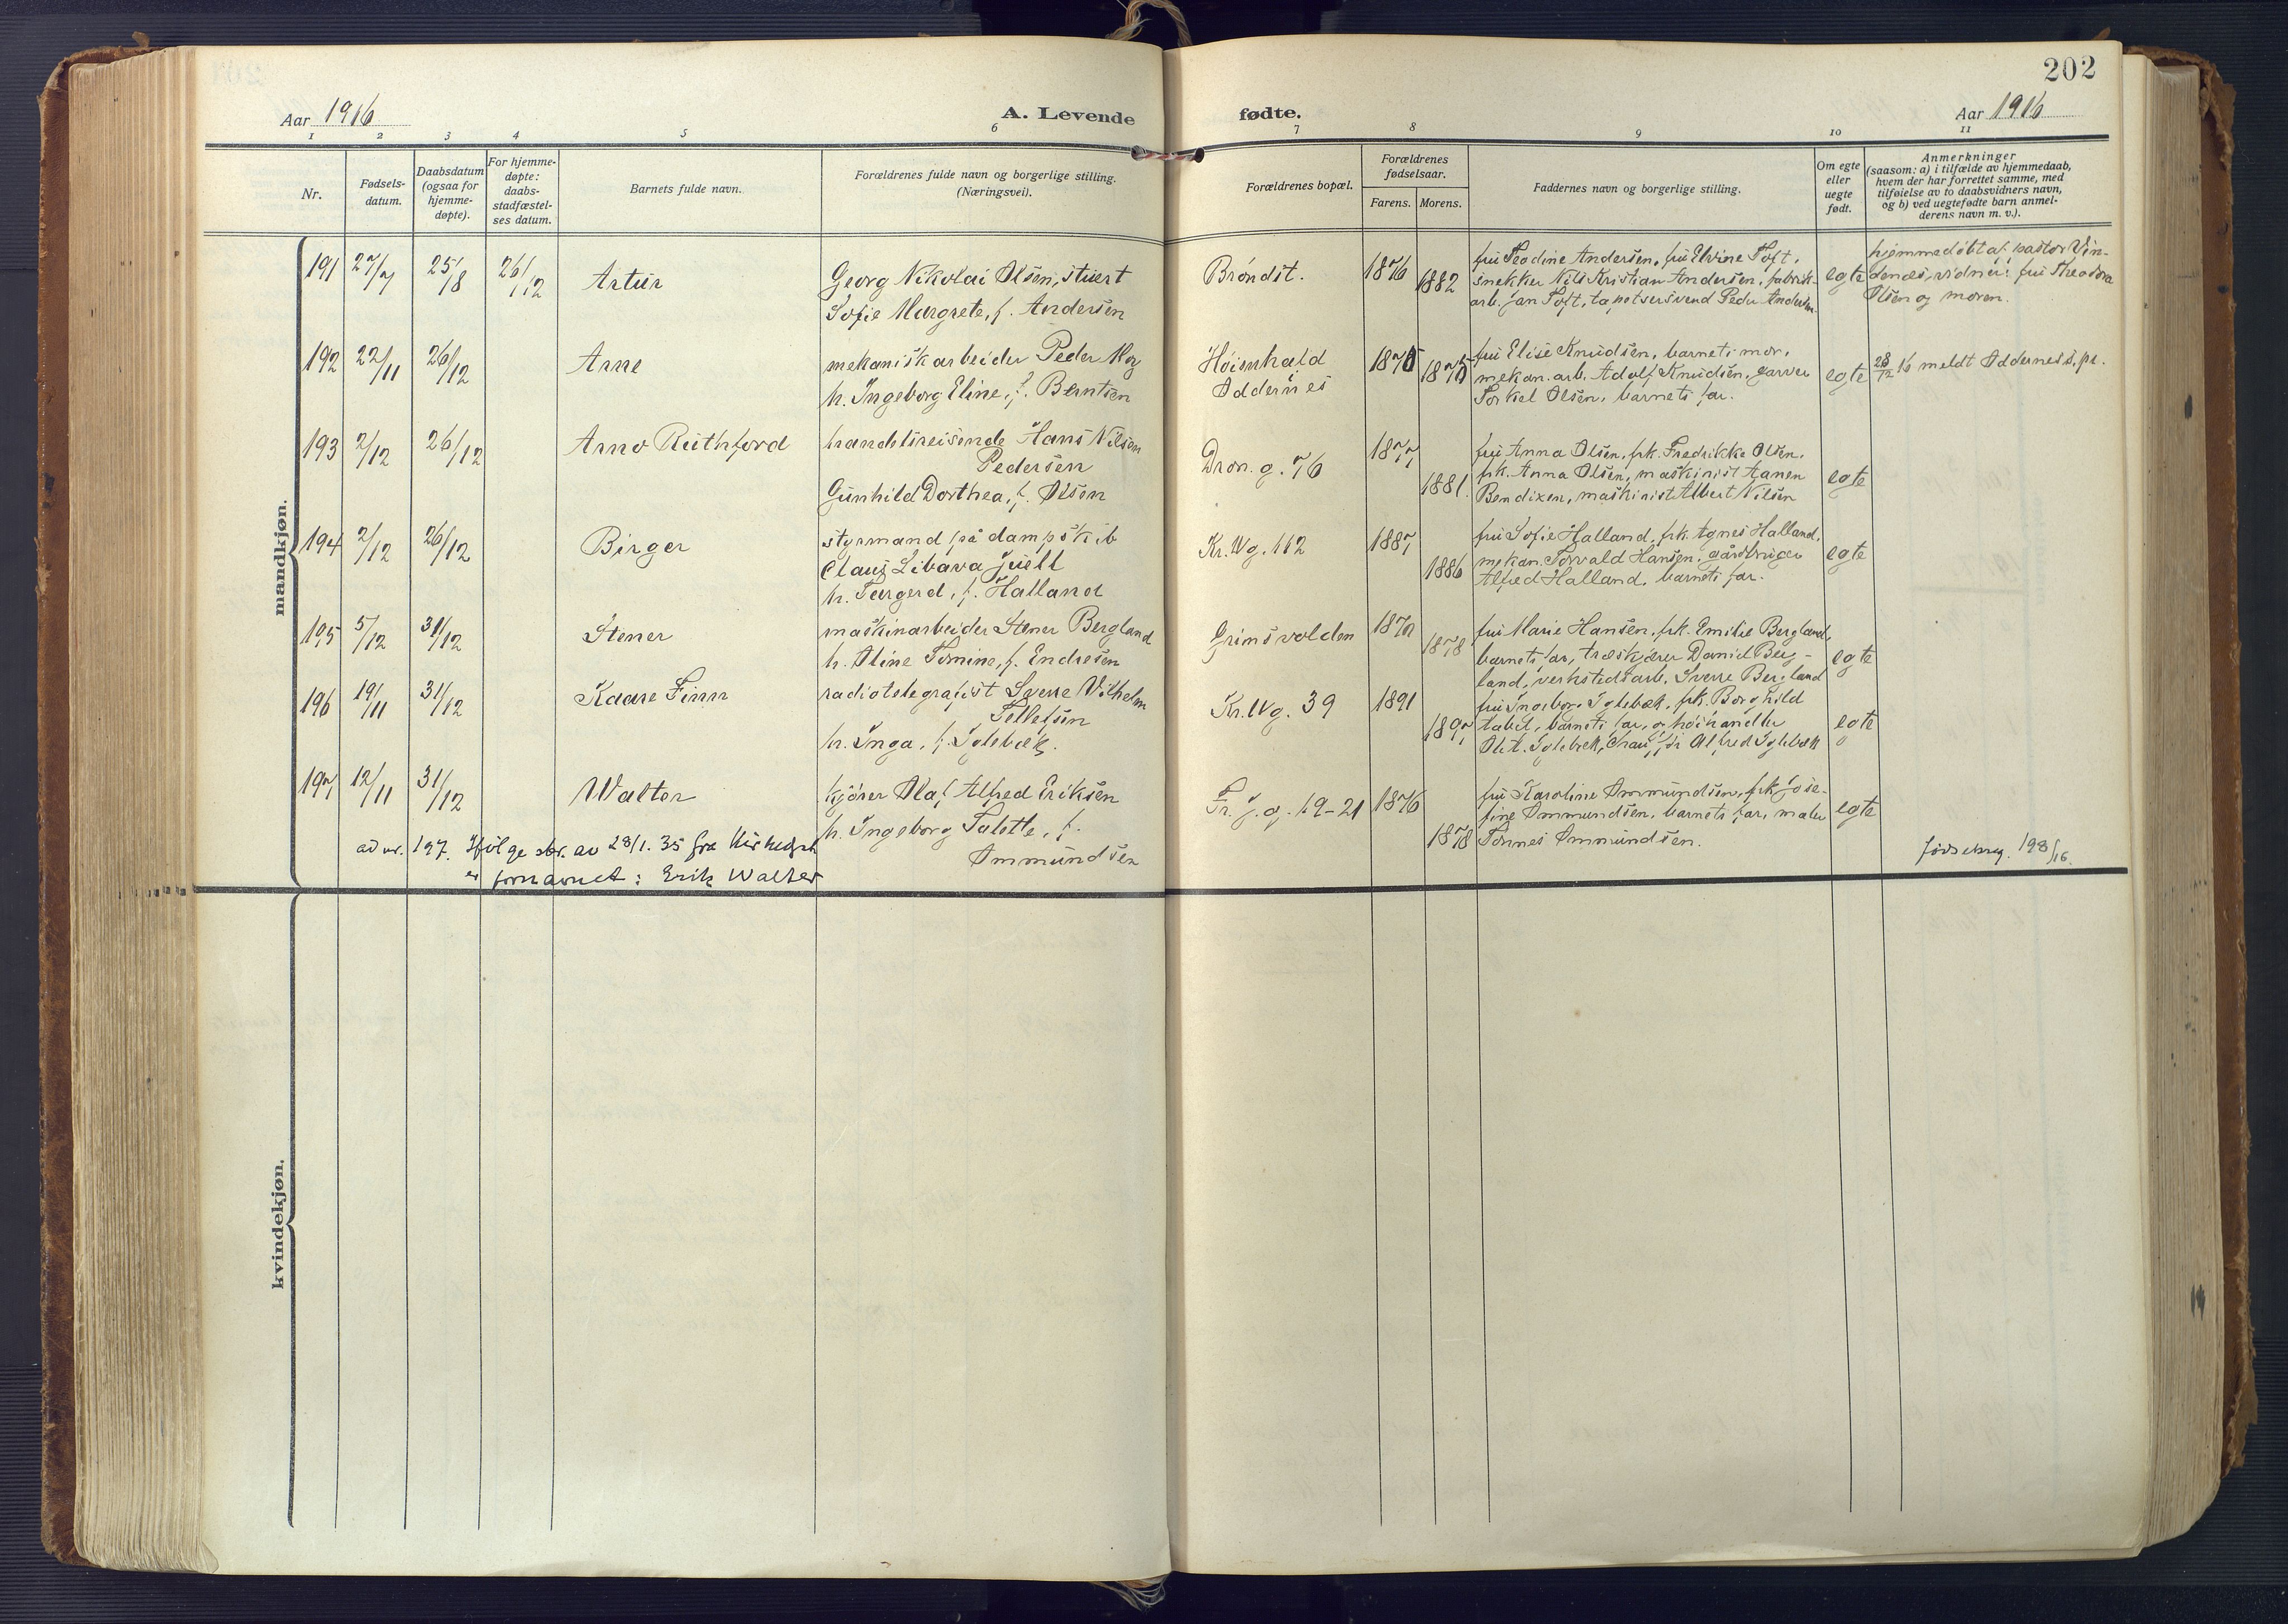 202
Aar 1916
A. Levende
fødte.
Aar 1916
1 2 3 4 5 6 7 8 9 10 11
Nr.
Fødsels-
datum.
Daabsdatum
(ogsaa for
hjemme-
døpte).
For hjemme-
døpte:
daabs-
stadfæstel-
ses datum.
Barnets fulde navn.
Forældrenes fulde navn og borgerlige stilling.
(Næringsvei).
Forældrenes bopæl.
Forældrenes
fødselsaar.
Farens. Morens.
Faddernes navn og borgerlige stilling.
Om egte
eller
uegte
født.
Anmerkninger
(saasom: a) i tilfælde av hjemmedaab,
hvem der har forrettet samme, med
tilføielse av to daabsvidners navn,
og b) ved uegtefødte barn anmel-
derens navn m. v.).
mandkjøn.
191 27/7 25/8 26/12 Artur
Georg Nikolai Olsen, stuert
Sofie Margrete, f. Andersen
Brøndst.
1876 1882
fru Teodine Andersen, fru Elvine Toft,
snekker Nils Kristian Andersen, fabrik-
arb. Jan Toft, tapetsersvend Peder Andersen
egte
hjemmedöbt af pastor Vin-
denes, vidner: fru Theodora
Olsen og moren.
192 22/11 26/12 Arne
mekanisk arbeider Peder Moy
h. Ingeborg Eline, f. Berntsen
Høienhæld
Oddernes
1875 1875
fru Elise Knudsen, barnets mor,
mekan. arb. Adolf Knudsen, garver
Torkel Olsen, barnets far.
egte
28/12 16 meldt Oddernes s.pr.
193 2/12 26/12 Arno Ruthford
handelsreisende Hans Nilsen
Pedersen
Gunhild Dorthea, f. Olsen
Dron. g. 76
1877
1881.
fru Anna Olsen, frk. Fredrikke Olsen,
frk. Anna Olsen, maskinist Aanen
Bendixen, maskinist Albert Nilsen
egte
194 2/12 26/12 Birger
styrmand på dampskib
Claus Libava Juell
h. Targerd, f. Halland
Kr. Wg. 112
1887
1886
fru Sofie Halland, frk. Agnes Halland,
mekan. Torvald Hansen, gårdbruger
Alfred Halland, barnets far.
egte
195 5/12 31/12 Stener
maskinarbeider Stener Bergland
h. Oline Tomine, f. Endresen
Grimsvolden
1872
1878
fru Marie Hansen, frk. Emilie Bergland,
barnets far, træskjærer Daniel Berg-
land, verkstedsarb. Sverre Bergland
egte
196 19/11 31/12 Kaare Finn
radiotelegrafist Sverre Vilhelm
Tellefsen
h. Inga, f. Iglebæk.
Kr. Wg. 39
1891
1897
fru Ingeborg Iglebæk, frk. Borghild
Tabet, barnets far, høihandler
Olet. Iglebæk, Alfred Iglebæk
egte
197 12/11 31/12 Walter
kjører Olaf Alfred Eriksen
h. Ingeborg Talette, f.
Ommundsen
Fr. J. g. 19-21
1876
1878
fru Karoline Ommundsen, frk. Jose-
fine Ommundsen, barnets far, maler
Tønnes Ommundsen.
egte
ad nr. 197. Ifølge skr. av 28/1. 35 fra Kirkedpt
er fornavnet: Erik Walter
fødselsreg. 198/16.
kvindekjøn.